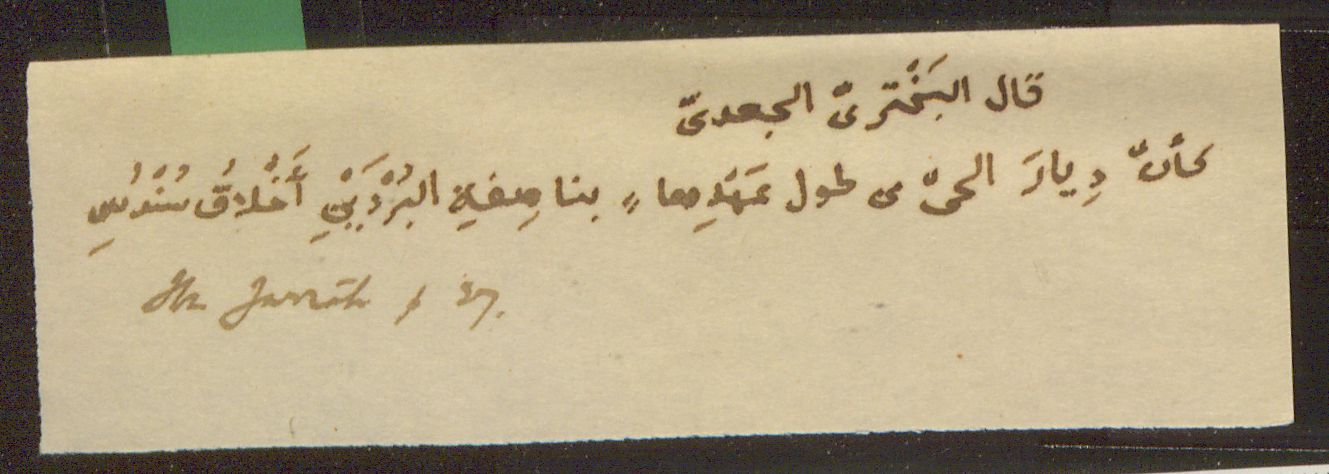 قال البَخْتَرىّ الجعدىّ
كأنّ دِيارَ الحىّ من طول عَهْدِها ؛ بناصِفةِ البُرْدَيْنِ أَخْلاقُ سُنْدُسِ
Ibn Jarrāḥ f 27.